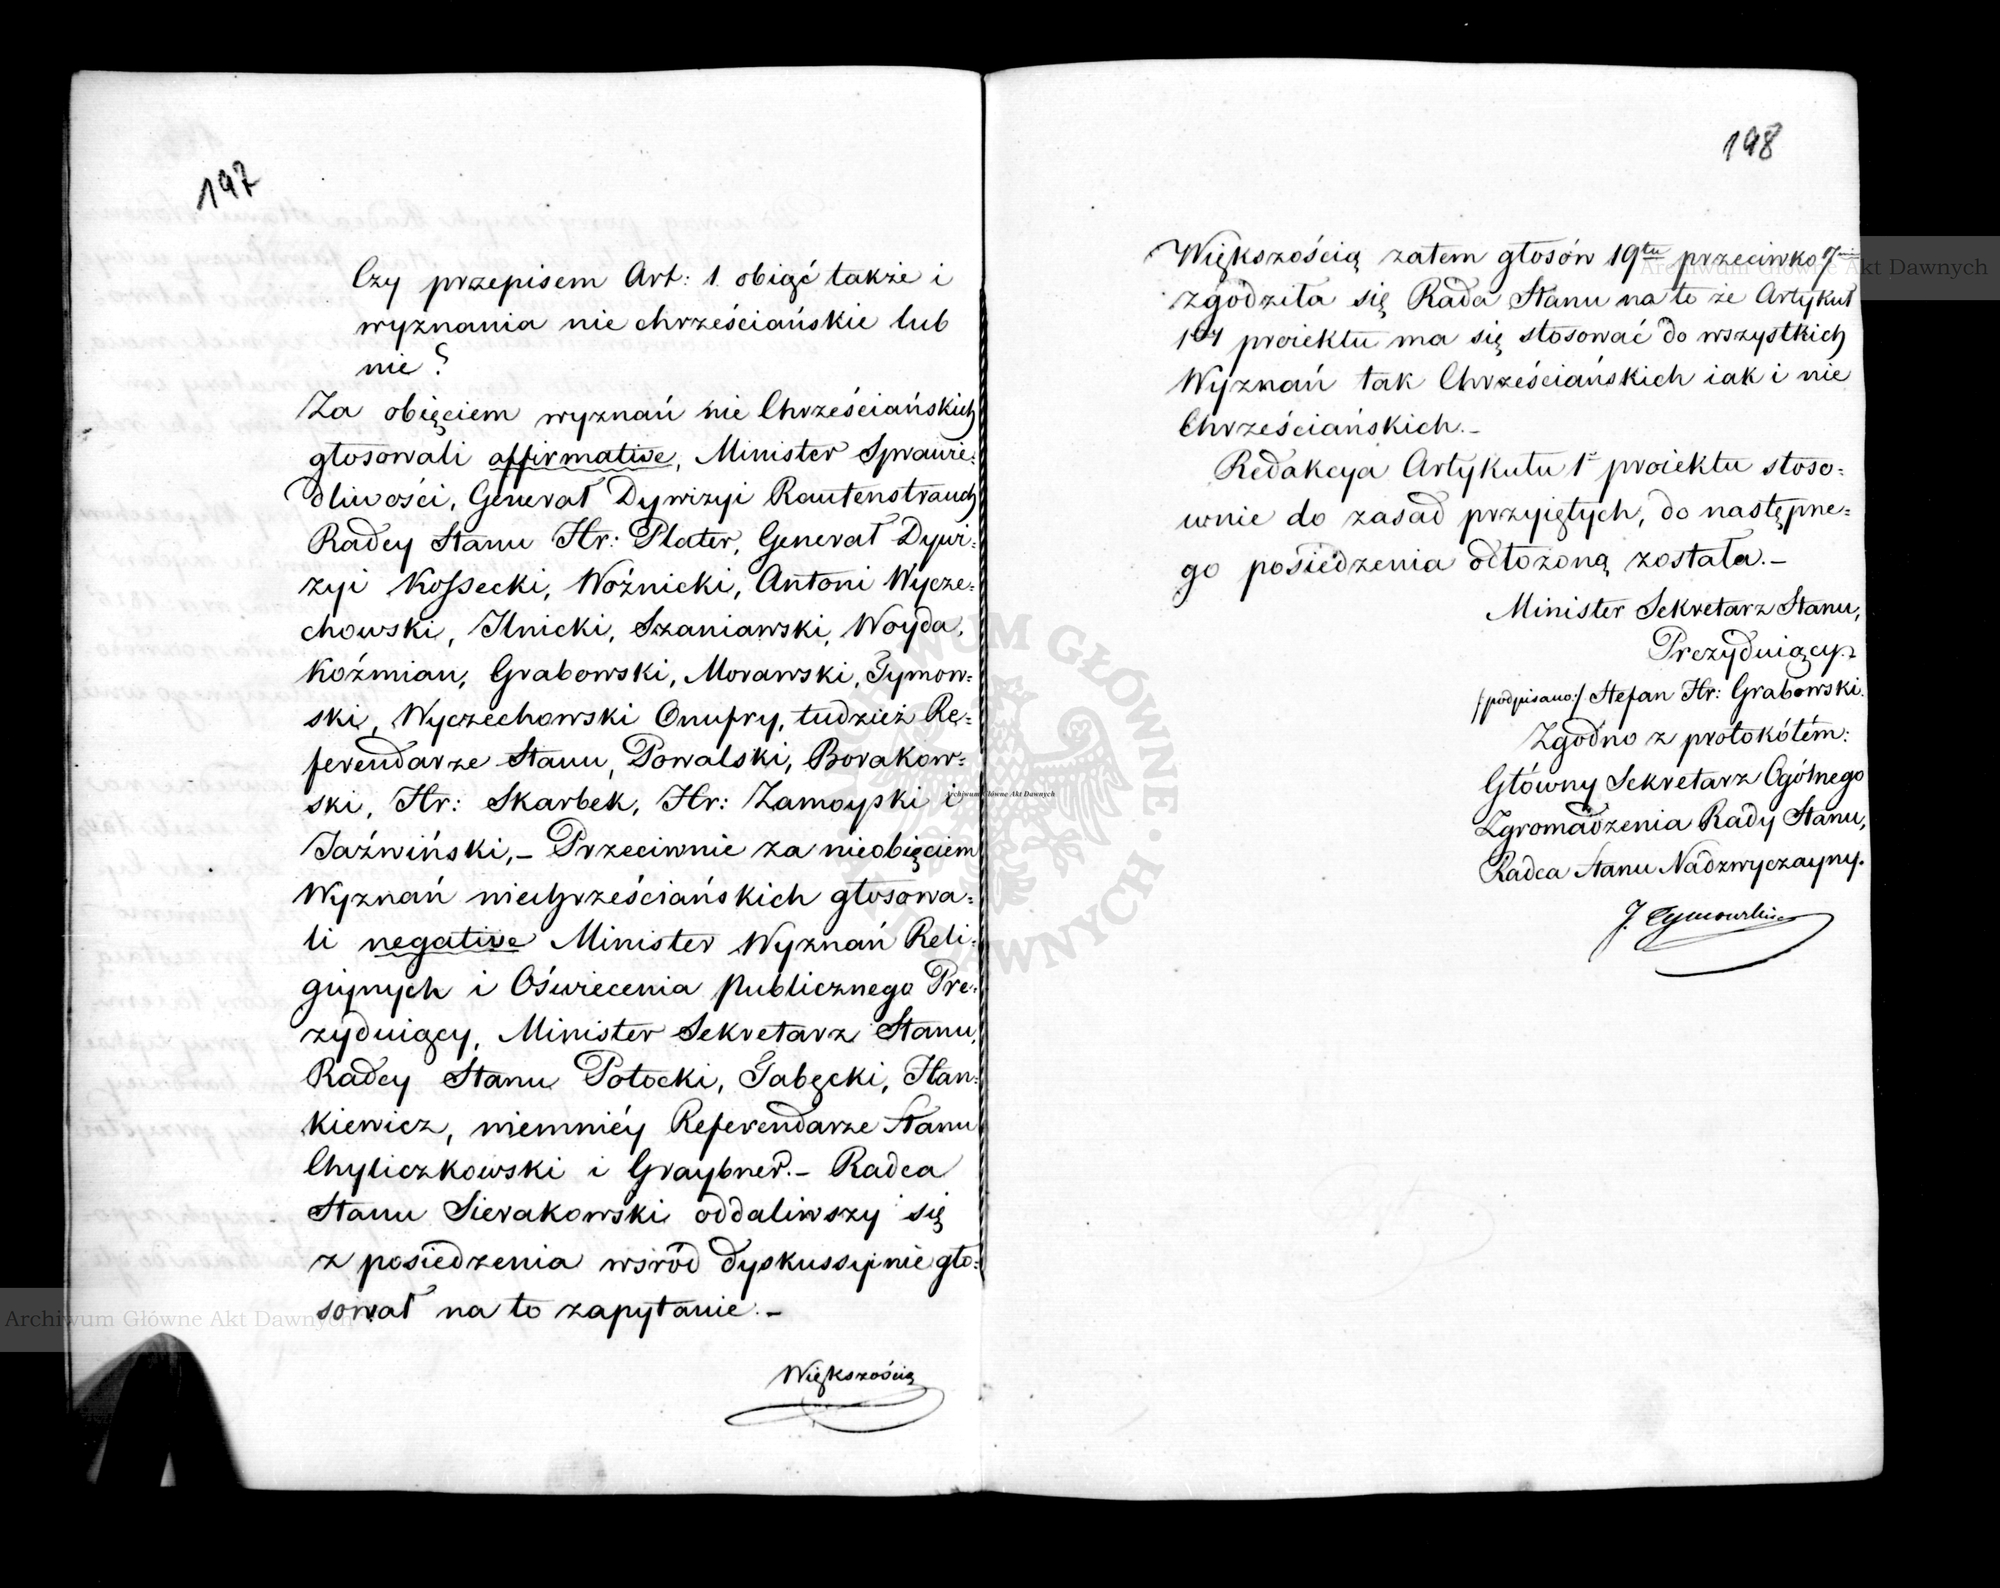 197
Czy przepisem Art: 1. obiąć także i
wyznania nie chrześciańskie lub
nie?
Za obięciem wyznań nie Chrześciańskich
głosowali affirmative, Minister Sprawie-
dliwości, Generał Dywizyi Rautenstrauch
Radcy Stanu Hr: Plater, Generał Dywi-
zyi Kossecki, Woźnicki, Antoni Wycze-
chowski, Ilnicki, Szaniawski, Woyda,
Koźmian, Grabowski, Morawski, Tymow-
ski, Wyczechowski Onufry, tudzież Re-
ferendarze Stanu, Powalski, Borakow-
ski, Hr: Skarbek, Hr: Zamoyski i
Jaźwiński,- Przeciwnie za nieobięciem
Wyznań niechrześciańskich głosowa-
li negative Minister Wyznań Reli-
giynych i Oświecenia Publicznego Pre-
zyduiący, Minister Sekretarz Stanu,
Radcy Stanu Potocki, Gabęcki, Han-
kiewicz, niemniéy Referendarze Stanu
Chyliczkowski i Graybner.- Radca
Stanu Sierakowski oddaliwszy się
z posiedzenia wśród dyskussyi nie gło-
sował na to zapytanie.-
Większością
198
Większością zatem głosów 19tu przeciwko 7miu
zgodziła się Rada Stanu na to że Artykuł
1szy proiektu ma się stosować do wszystkich
Wyznań tak Chrześciańskich iak i nie
Chrześciańskich.-
Redakcya Artykułu 1o proiektu stoso-
wnie do zasad przyiętych, do następne-
go posiedzenia odłożoną została.-
Minister Sekretarz Stanu,
Prezyduiący.
/podpisano:/ Stefan Hr: Grabowski.
Zgodno z protokółem:
Główny Sekretarz Ogólnego
Zgromadzenia Rady Stanu,
Radca Stanu Nadzwyczayny.
J. Tymowski
Archiwum Główne Akt Dawnych
Archiwum Główne Akt Dawnych
Archiwum Główne Akt Dawnych
ARCHIWUM GŁÓWNE AKT DAWNYCH